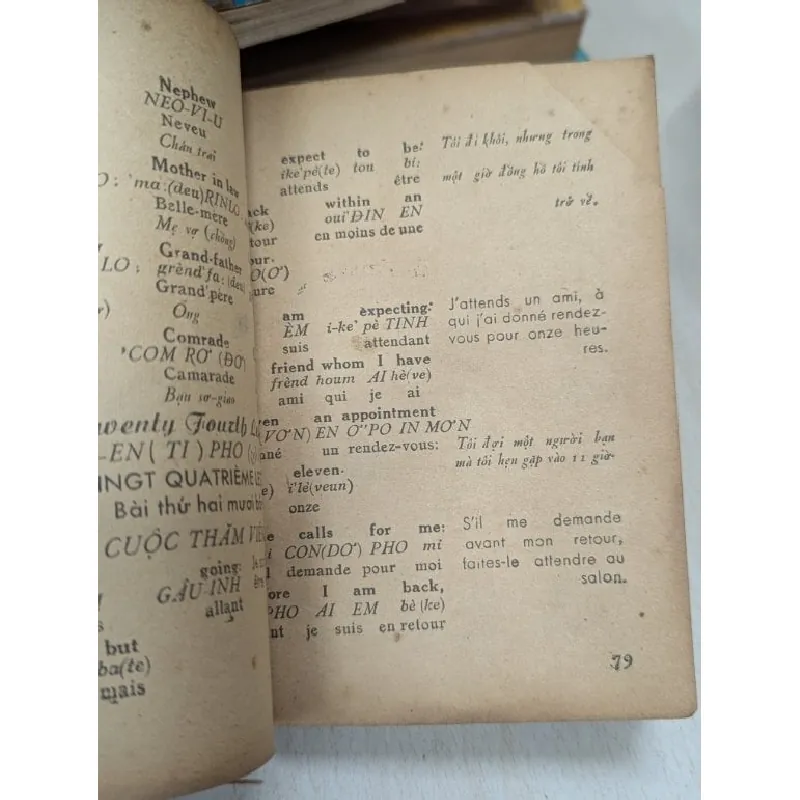 Nephew
NEO-VI-U
Neveu
Chán trai
Mother in law
'ma:(deu)RINLO
Belle-mère
Mẹ vợ (chồng)
Grand-father
LO; grènd'fa:(deu)
Grand'père
Ông
Comrade
'COM RƠ (ĐƠ)
Camarade
Bạn sơ-giao
wenty Fourth
-EN( TI ) PHO
INGT QUATRIÈME
Bài thứ hai mươi
CUỘC THĂM
going:
GÂU INH
allant
but
ba(te)
mais
expect to be:
ike'pé(te) tou bi:
attends être
within an
ouiĐIN EN
tour en moins de une
ure
Tôi đi khỏi, nhưng trong
một giờ đồng hồ tôi tính
trở về.
am expecting:
ÈM i-ke' pè TINH
suis attendant
friend whom I have
frènd houm AI hè(ve)
ami qui je ai
en an appointment
(VƠN) EN Ơ"PO IN MƠN
un rendez-vous:
eleven.
i'lè(veun)
onze
J'attends un ami, à
qui j'ai donné rendez-
vous pour onze heu-
res.
Tôi đợi một người bạn
mà tôi hẹn gặp vào 11 giờ-
calls for me:
CON(DƠ) PHO mi
demande pour moi
ore I am back,
PHO AI EM bè(ke)
nt je suis en retour
S'il me demande
avant mon retour,
faites-le attendre au
salon.
79